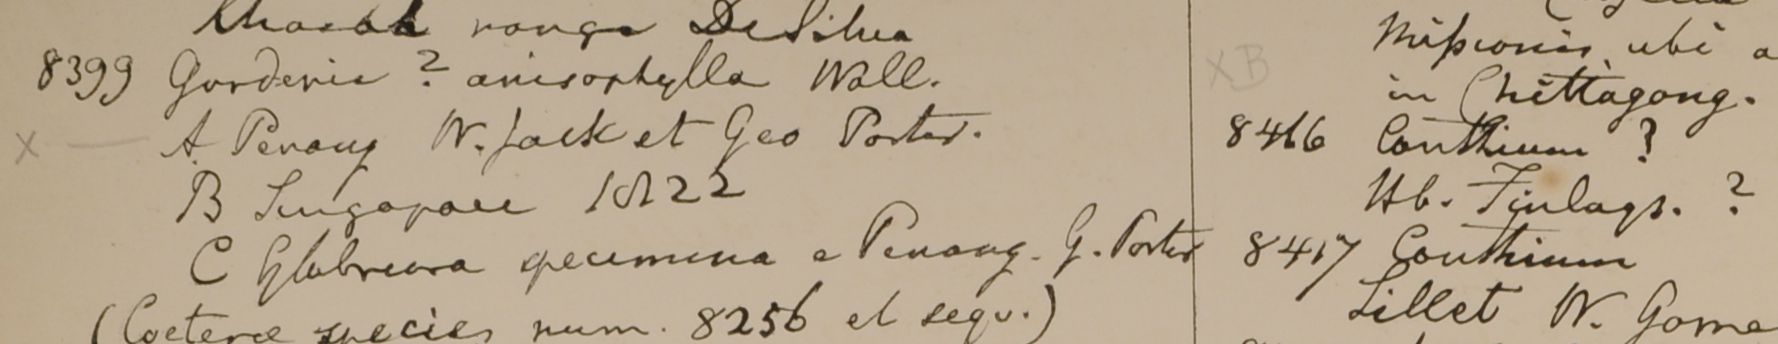 rouge DeSilva
8399 Gardenia ? anisophylla Wall.
X — A. Penang W. Jack et Geo Porter.
B Singapore 1822
C Glabriora specimina e Penang. G. Porter
(Coeterae species num. 8256 et sequ.)
XB
Missionis ubi a
in Chittagong.
8416 Canthium ?
Hb. Finlays. ?
8417 Canthium
Sillet W. Gome